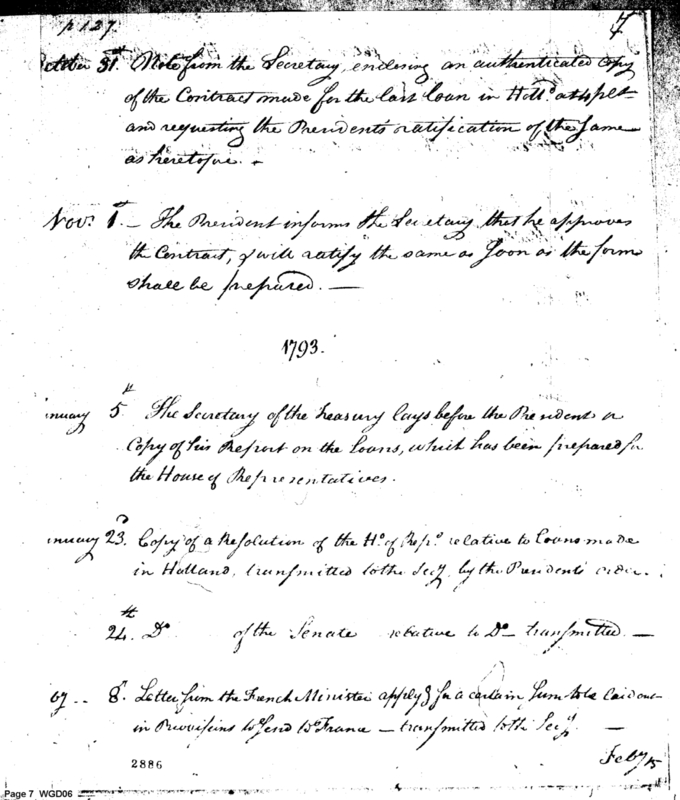 p 127
7
ctober 31st. Note from the Secretary, enclosing an authenticated copy
of the Contract made for the last loan in Holld. at 4 pCt
and requesting the President's ratification of the same
as heretofore. -
Nov: 1st. — The President informs the Secretary that he approves
the Contract, & will ratify the same as soon as the form
shall be prepared. —
1793.
anuary 5th. The Secretary of the Treasury lays before the President a
Copy of his Report on the Loans, which has been prepared for
the House of Representatives.
anuary 23d. Copy of a Resolution of the Ho. of Reps. relative to Loans made
in Holland, transmitted to the Secy. by the President's order.
24th. Do of the Senate relative to Do — transmitted. —
by .. 8th. Letter from the French Minister applyg for a certain sum to be laid out
in Provisions to send to France — transmitted to the Secy. —
Feby 15
2886
Page 7 WGD06